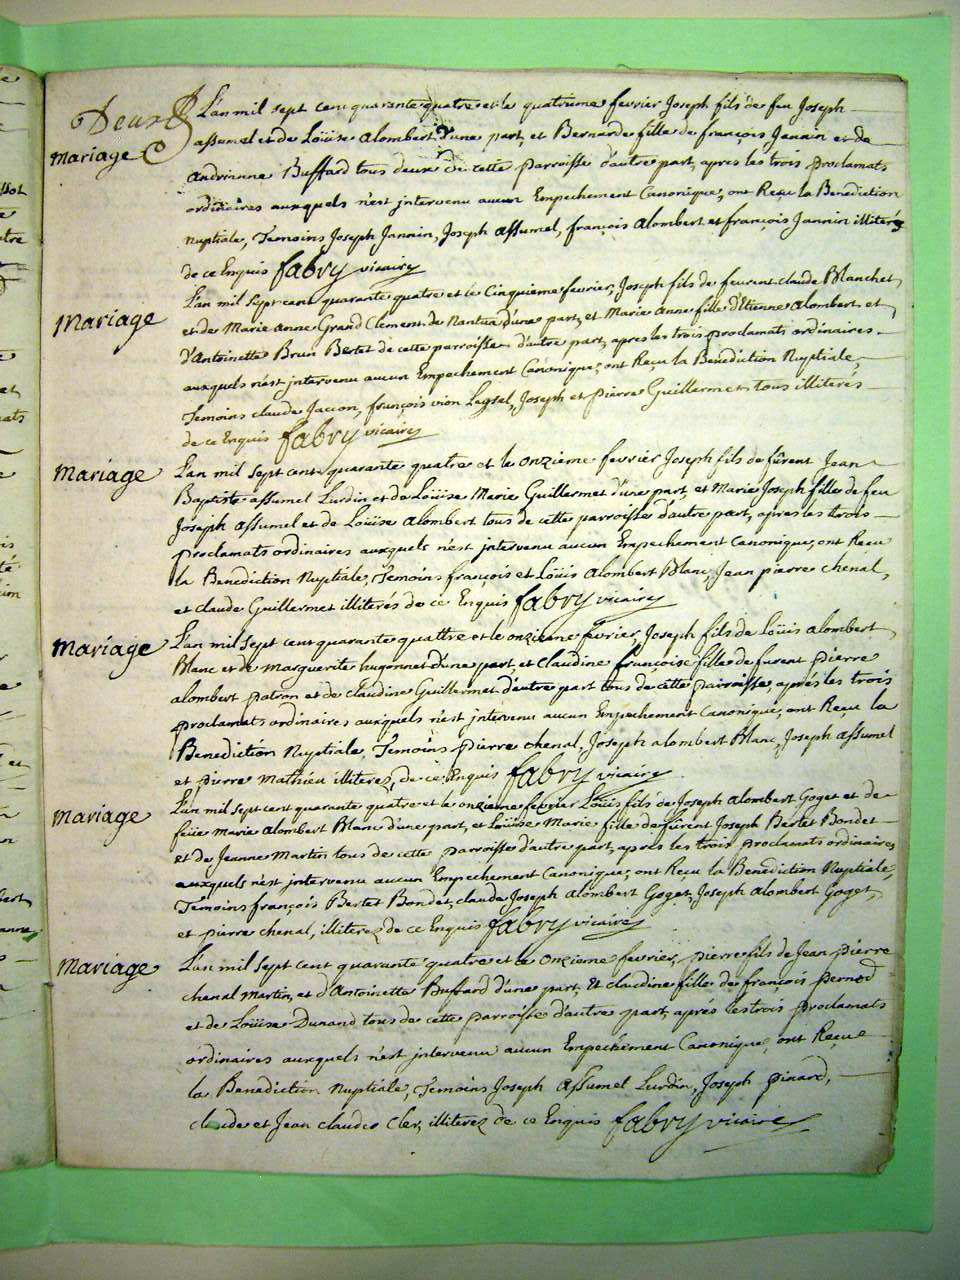 Deux
Mariage
L'an mil sept cent quarante quatre et le quatrieme fevrier Joseph fils de feu Joseph
assumel et de Loüise Alombert d'une part, et Bernarde fille de françois Jannin et de
Andrianne Buffard tous deux de cette parroisse d'autre part, apres les trois proclamats
ordinaires auxquels n'est jntervenu aucun Empechement Canonique, ont Reçu la Benediction
Nuptiale, Temoins Joseph Jannin, Joseph Assumel, françois Alombert et françois Jannin illiterés
de ce Enquis fabry vicaire
Mariage
L'an mil sept cent quarante quatre et le Cinquieme fevrier, Joseph fils de feu claude Blanchet
et de Marie Anne Grand Clement de Nantua d'une part, et Marie Anne fille d'Etienne Alombert et
d'Antoinette Brun Bertet de cette parroisse d'autre part, apres les trois proclamats ordinaires
auxquels n'est jntervenu aucun Empechement Canonique, ont Reçu la Benediction Nuptiale,
Temoins claude françois vion Joseph et pierre Guillermet tous illiterés
de ce Enquis fabry vicaire
Mariage
L'an mil sept cent quarante quatre et le onzieme fevrier Joseph fils de fûrent Jean
Baptiste assumel Lurdin et de Loüise Marie Guillermet d'une part, et Marie Joseph fille de feu
Joseph Assumel et de Loüise Alombert tous de cette parroisse d'autre part, apres les trois
proclamats ordinaires auxquels n'est jntervenu aucun Empechement Canonique, ont Reçu
la Benediction Nuptiale, Temoins françois et Loüis Alombert Blanc, Jean pierre chenal,
et claude Guillermet illiterés de ce Enquis fabry vicaire
Mariage
L'an mil sept cent quarante quattre et le onzieme fevrier, Joseph fils de Loüis Alombert
Blanc et de marguerite hugonnet d'une part et Claudine françoise fille de furent pierre
alombert patron et de claudine Guillermet d'autre part tous de cette parroisse, aprés les trois
proclamats ordinaires auxquels n'est jntervenu aucun Empechement Canonique, ont Reçu la
Benediction Nuptiale, Temoins pierre chenal, Joseph alombert Blanc, Joseph Assumel
et pierre Mathieu illiterez, de ce Enquis fabry vicaire
Mariage
L'an mil sept cent quarante quatre et le onzieme fevrier Loüis fils de Joseph Alombert Goget et de
feüe marie Alombert Blanc d'une part, et Loüise Marie fille de fûrent Joseph Bertet Bondet
et de Jeanne Martin tous de cette parroisse d'autre part, apres les trois proclamats ordinaires
auxquels n'est jntervenu aucun Empechement Canonique, ont Reçu la Benediction Nuptiale,
Temoins françois Bertet Bondet, claude Joseph Alombert Goget, Joseph Alombert Goget,
et pierre chenal, illiterez de ce Enquis fabry vicaire
Mariage
L'an mil sept cent quarante quatre et le onzieme fevrier, pierre fils de Jean pierre
chenal Martin, et d'Antoinette Buffard d'une part, Et claudine fille de françois pernod
et de Loüise Durand tous de cette parroisse d'autre part, aprés les trois proclamats
ordinaires auxquels n'est jntervenu aucun Empechement Canonique, ont Reçu
la Benediction Nuptiale, Temoins Joseph Assumel Lurdin, Joseph pinard,
claude et Jean claude Cler, illiterez de ce Enquis fabry vicaire